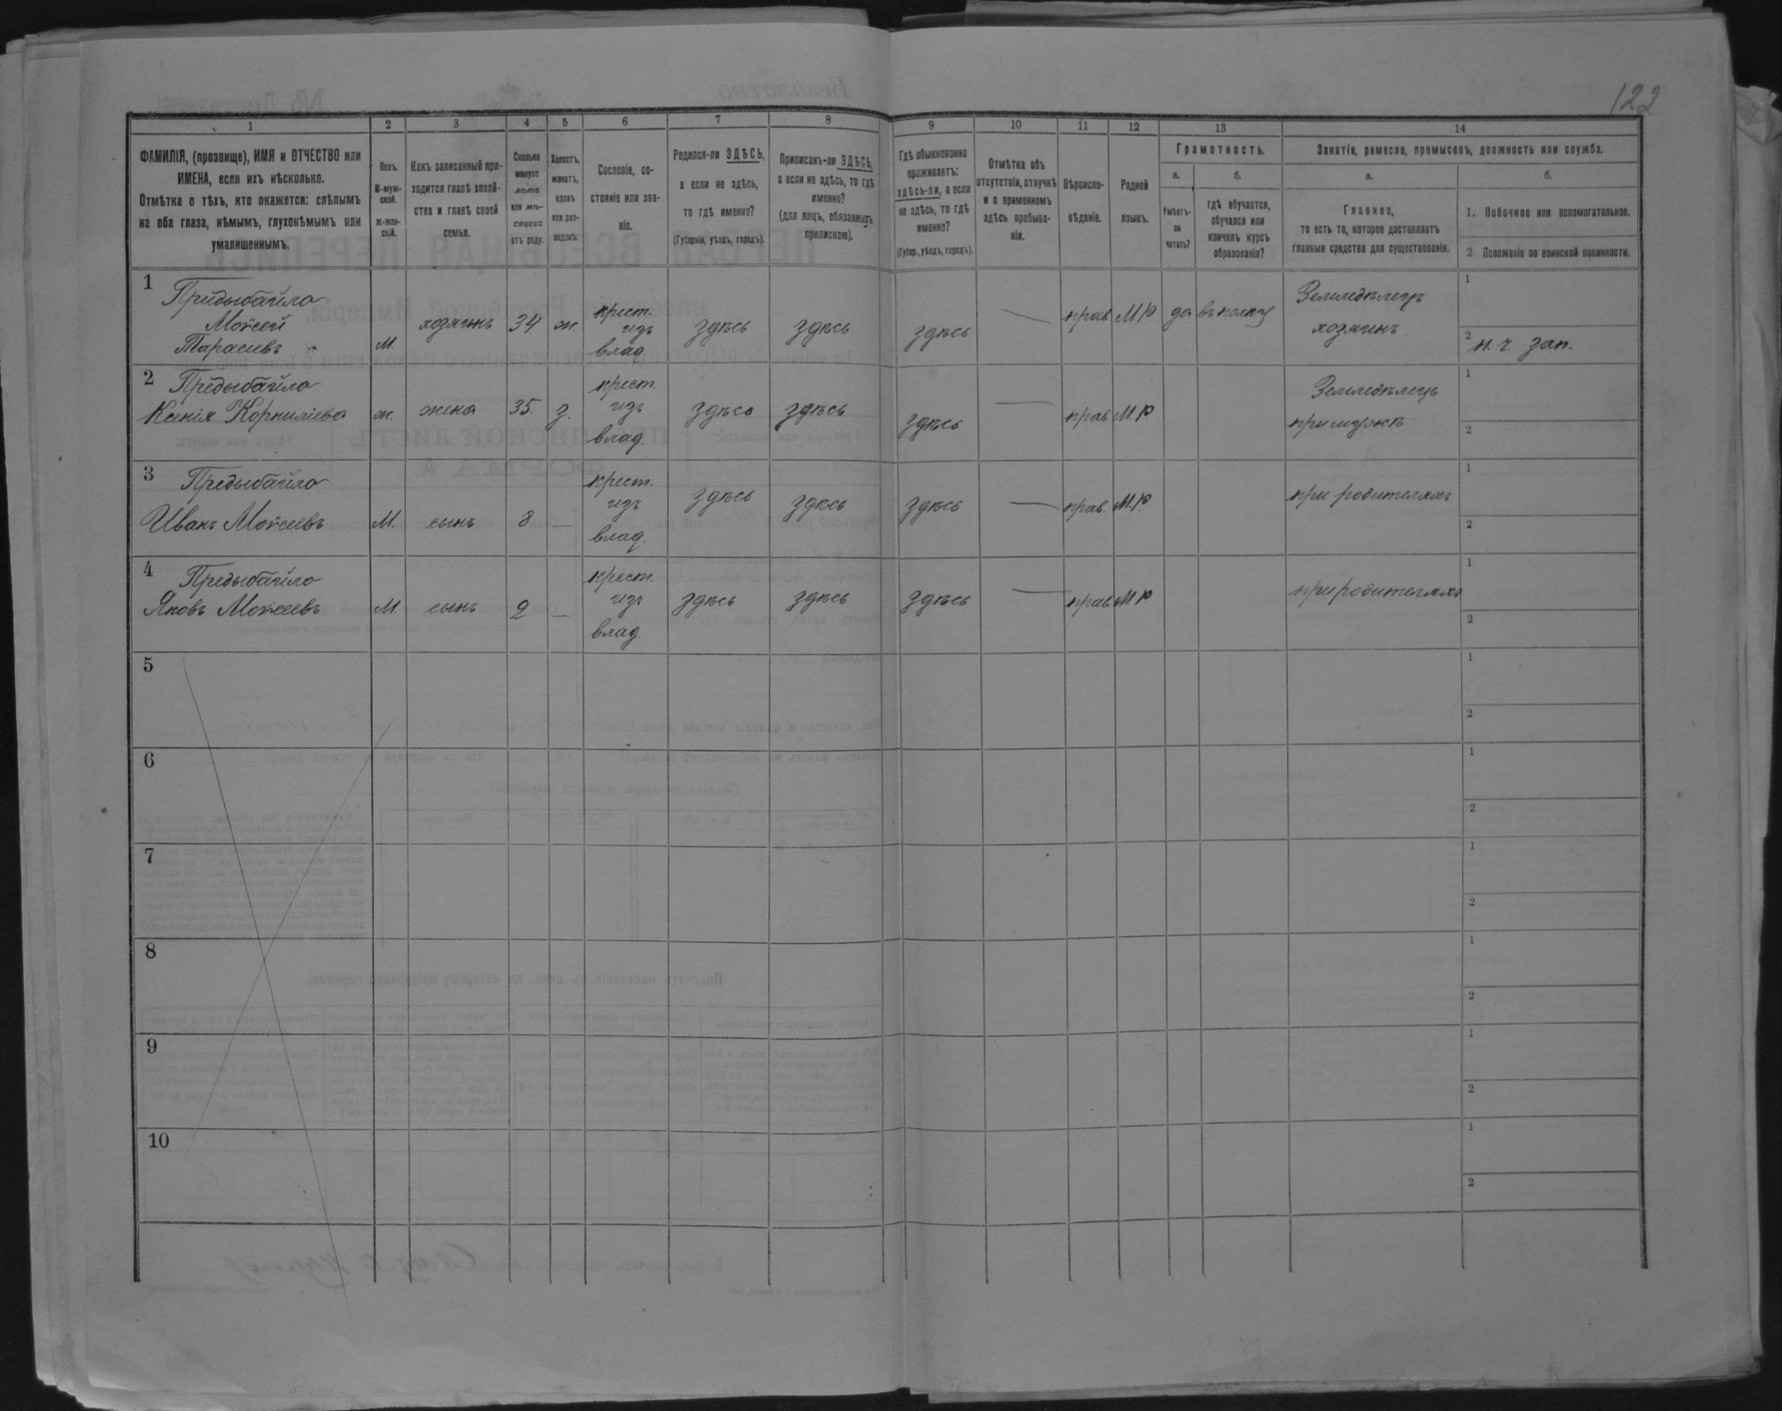 122
1 2 3 4 5 6 7 8 9 10 11 12 13 14
ФАМИЛІЯ, (прозвище), ИМЯ и ОТЧЕСТВО или
ИМЕНА, если ихъ нѣсколько.
Отмѣтка о тѣхъ, кто окажется: слѣпымъ
на оба глаза, нѣмымъ, глухонѣмымъ или
умалишеннымъ.
Полъ.
М-муж-
ской.
ж-жен-
скій.
Какъ записанный при-
ходится главѣ хозяй-
ства и главѣ своей
семьи.
Сколько
минуло
лѣтъ
или мѣ-
сяцевъ
отъ роду.
Холостъ,
женатъ,
вдовъ
или раз-
веденъ.
Сословіе, со-
стояніе или зва-
ніе.
Родился-ли ЗДѢСЬ,
а если не здѣсь,
то гдѣ именно?
(Губернія, уѣздъ, городъ).
Приписанъ-ли ЗДѢСЬ,
а если не здѣсь, то гдѣ
именно?
(для лицъ, обязанныхъ
припискою).
Гдѣ обыкновенно
проживаетъ:
здѣсь-ли, а если
не здѣсь, то гдѣ
именно?
(Губер., уѣздъ, городъ).
Отмѣтка объ
отсутствіи, отлучкѣ
и о временномъ
здѣсь пребыва-
ніи.
Вѣроиспо-
вѣданіе.
Родной
языкъ.
Грамотность.
а.
Умѣетъ-
ли
читать?
б.
гдѣ обучается,
обучался или
кончилъ курсъ
образованія?
Занятіе, ремесло, промыселъ, должность или служба.
а.
Главное,
то есть то, которое доставляетъ
главныя средства для существованія.
б.
1. Побочное или вспомогательное.
2 Положеніе по воинской повинности.
1 Придыбайло
Моѵсей
Тарасіевъ
М. хозяинъ 34 ж. крест.
изъ
влад. здѣсь здѣсь здѣсь — прав МР да
Земледѣлецъ
хозяинъ
1
2 н. ч. зап.
2 Предыбайло
Ксенія Корниліева ж. жена 35. з. крест
изъ
влад. здѣсь здѣсь здѣсь — прав МР
Земледѣлецъ
при мужѣ
1
2
3 Предыбайло
Иванъ Моѵсеевъ М. сынъ 8 — крест.
изъ
влад. здѣсь здѣсь здѣсь — прав. М.Р
при родителяхъ
1
2
4 Предыбайло
Яковъ Моѵсеевъ М. сынъ 2 — крест.
изъ
влад. здѣсь здѣсь здѣсь — прав МР
при родителяхъ
1
2
5
1
2
6
1
2
7
1
2
8
1
2
9
1
2
10
1
2